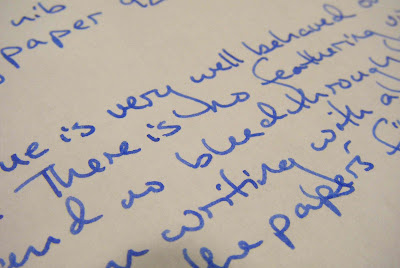 nib
paper
ue is very well behaved
There is no feathering
and no bleedthrough
writing with a
the papers